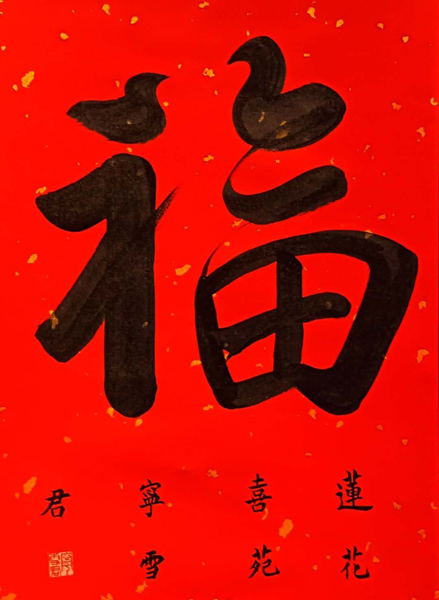 福
蓮花
喜苑
寧雪
君